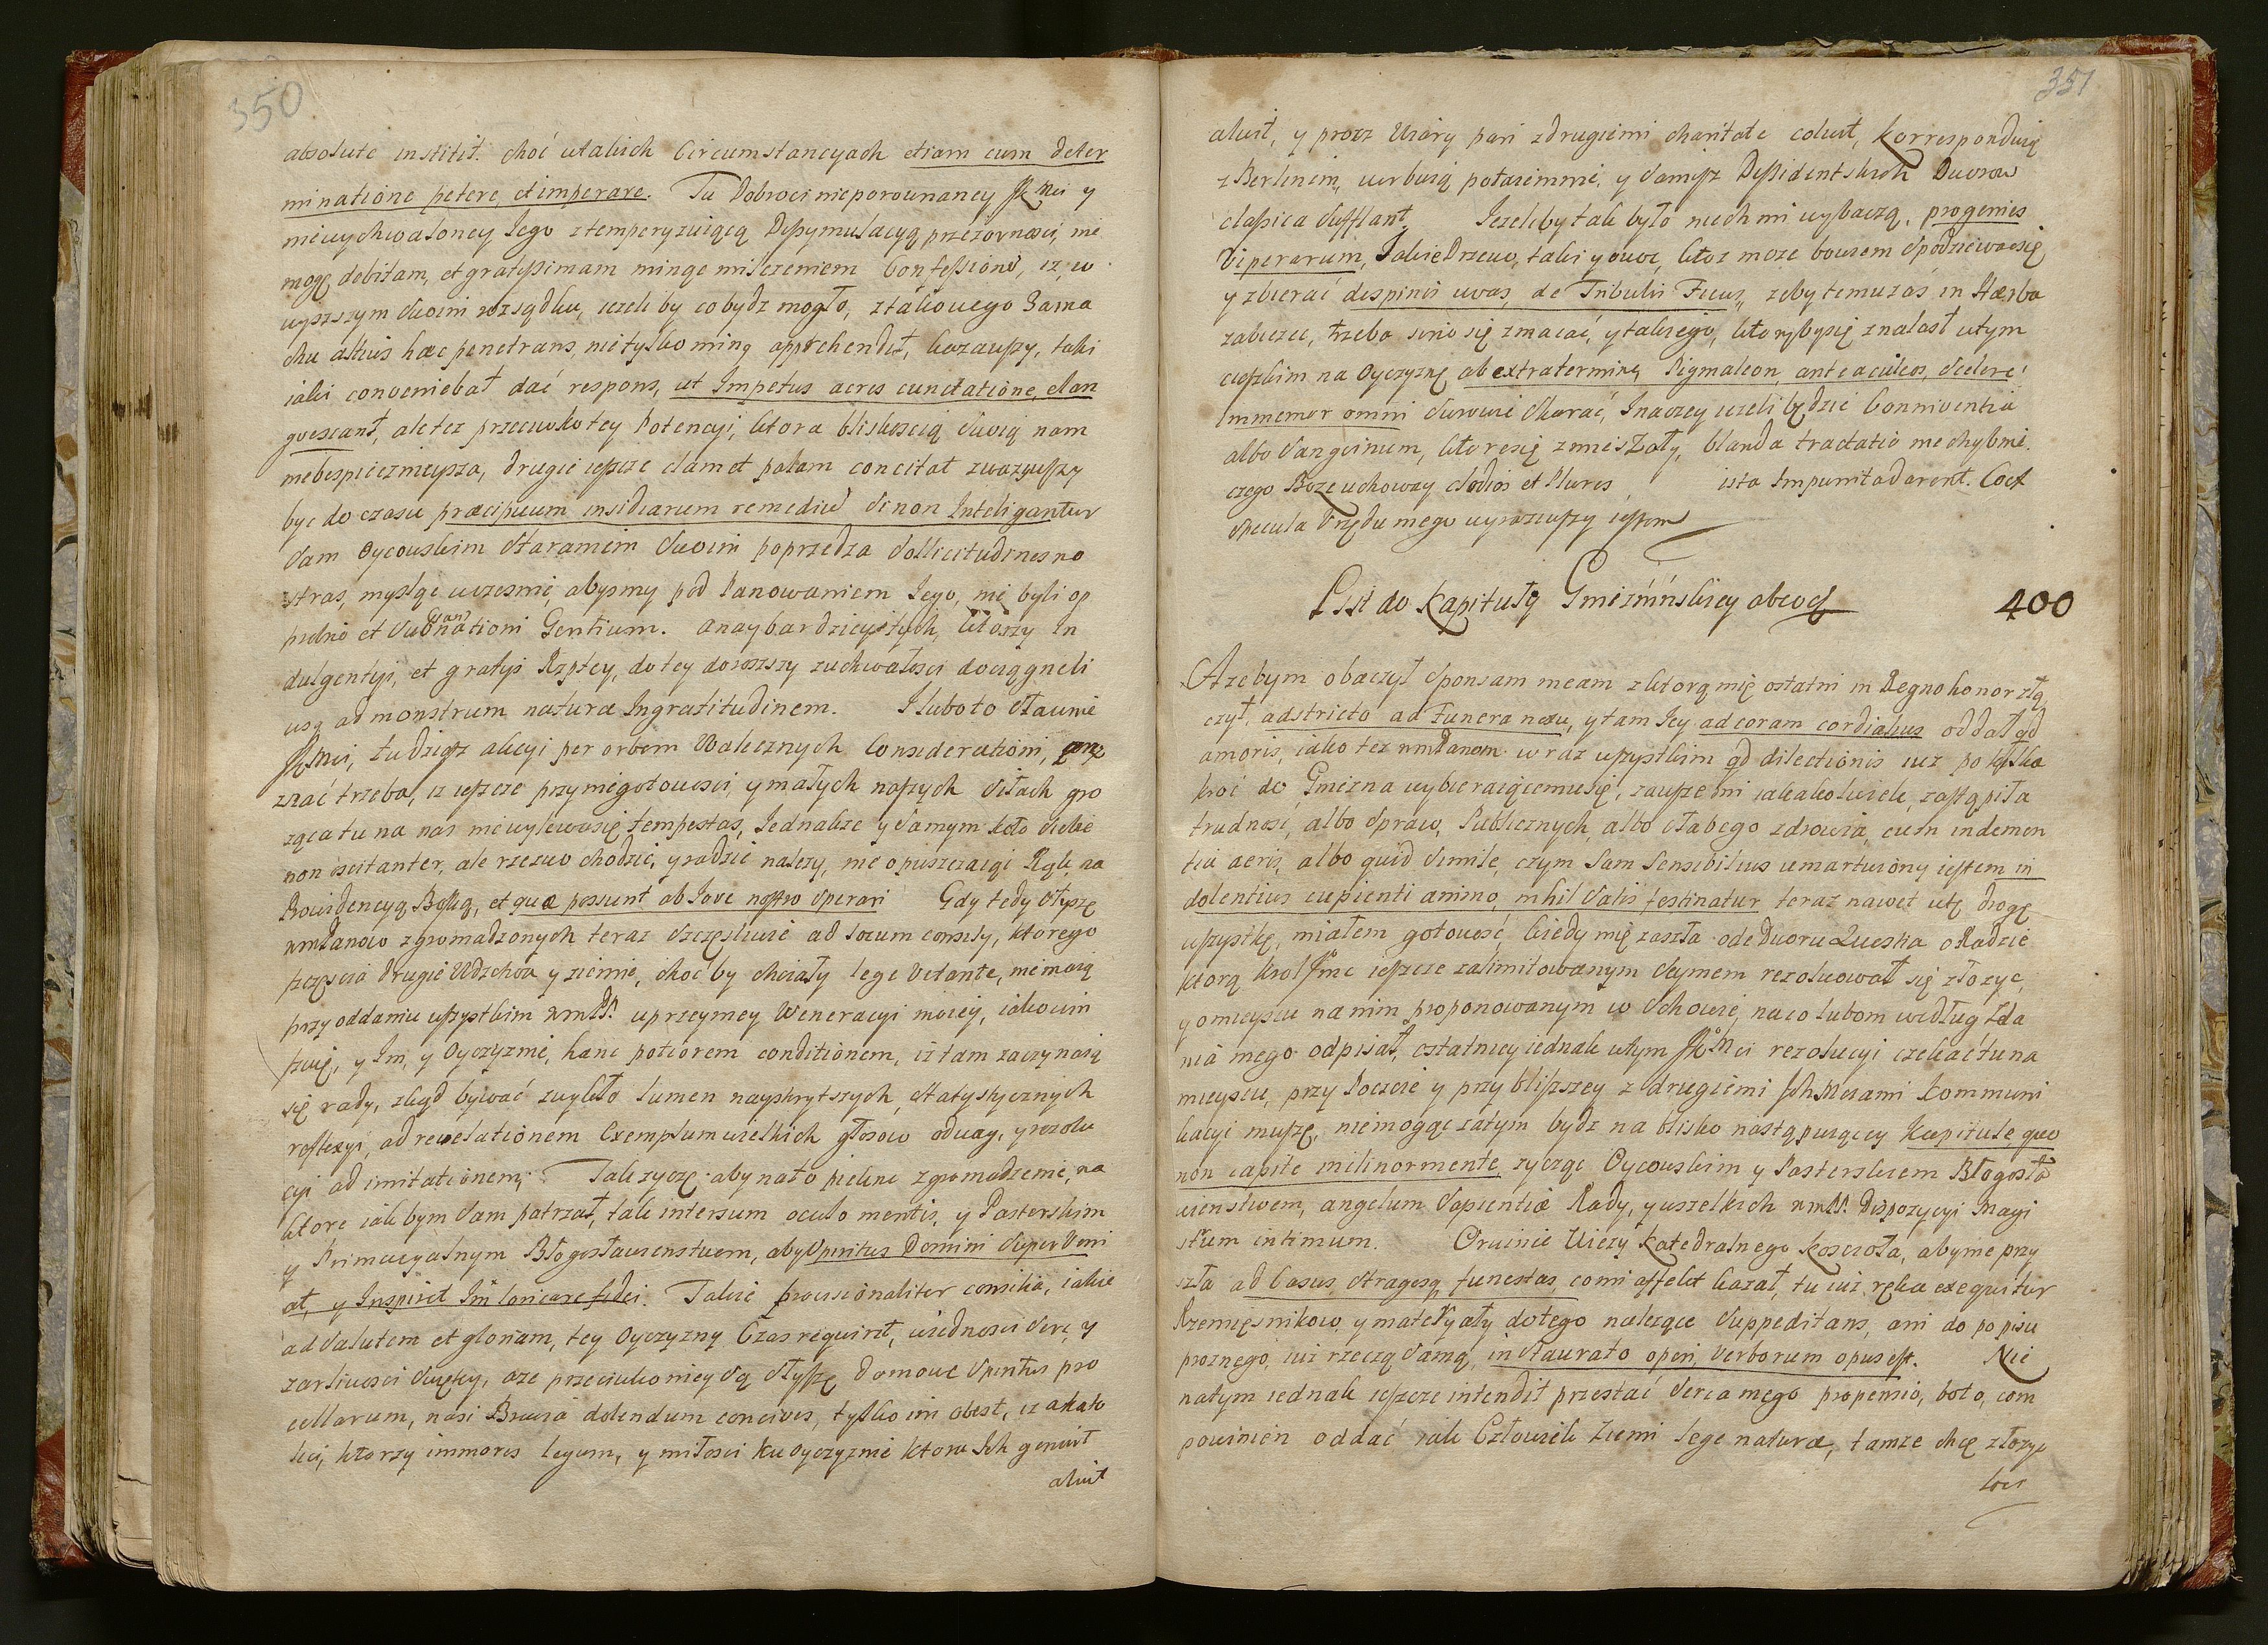 350
absolute institit. choć wtakich Circumstancyach etiam cum deter
minatione petere, et imperare. Tu Dobroci nieporownaney JKMci y
niewychwaloney Iego ztemperyzuiącą Dyssymulacyą przezorności, nie
mogę debitam, et gratissimam minąć milczeniem Confessionē, iż w
wyższym swoim rozsądku, ieżeli by co bydz mogło, ztakowego Zama
chu altius haec penetrans, nietylko ming apprehendit, kazawszy, taki
iaki conveniebat dać respons, ut Impetus acres cunctatione, elan
guescant, ale też przeciwko tey Potencyi, ktora bliskością swoią nam
niebespiecznieysza, drugie ieszcze clam et palam concitat zważywszy
byc do czasu praecipuum insidiarum remediū si non Inteligantur
Sam Oycowskim staraniem swoim poprzedza sollicitudines no
stras, myśląc wcześnie, abyśmy pod Panowaniem Iego, nie byli op
pielnio et Subsannationi Gentium. a naybardziey tych, ktorzy In
dulgentyi, et gratyi Rzptey, do tey dorosszy zuchwałości dociągneli
usq ad monstrum naturae Ingratitudinem. I lubo to sławie
JKMci, tudziesz akcyi per orbem Walecznych Considerationi, prze
znać trzeba, iż ieszcze przy niegotowości, y małych naszych siłach gro
żąca tu na nas niewylewa się tempestas, Iednakże y samym koło siebie
non oscitanter, ale rzezwo chodzić, y radzić należy, nie opuszczaiąc Ręk, na
Prowidencyą Boską, et quae possunt ab Iove nostro sperari Gdy tedy słyszę
wmPanow zgromadzonych teraz szczęsliwie ad locum consily, ktorego
szczęscia drugie Wdztwa y ziemie, choć by chciały lege vetante, nie maią
przy oddaniu wszystkim wmPP. uprzeymey Weneracyi moiey, iakowin
szuię, y Im, y Oyczyznie, hanc potiorem conditionem, iż tam zaczynaią
się rady, zkąd bywać zwykło lumen nayskrytszych, statystycznych
reflexyi, ad revelationem Exemplum wielkich głosow odwag, y rezolu
cyi ad imitationem, Tak życzę aby na to piękne zgromadzenie, na
ktore iak bym sam patrzał, tak intersum oculo mentis, y Pasterskim
y Primacyalnym Błogosławienstwem, aby Spiritus Domini super veni
at, y Inspiret Im loricare fidei. Takie provisionaliter consilia, iakie
ad salutem et gloriam, tey Oyczyzny Czas requirit, wiedności serc, y
żarliwości swiętey, a że przeciwko niey są słyszę domowe spiritus pro
cellarum, nasi Bracia dolendum concives, tylko im obest, iż akato
lici, ktorzy immores legum, y miłości ku oyczyznie ktora Ich genuit
aluit
351
aluit, y przez Wiary pari zdrugiemi charitate coluit, korresponduią
z Berlinem, werbuią potaiemnie, y samysz Dyssidentskich Dworow
classica sufflant. Ieżeliby tak było niech mi wybaczą, progenies
viperarum, Iakie Drzewo, taki y owoc, ktoż może bowiem spodziewać się
y zbierać de spinis uvas, de Tribulis Ficus, żeby temu zaś in Haerba
zabieżec, trzeba serio się zmacać, y takiego, ktoryby się znalasł wtym
cieszkim na Oyczyznę ab extra termine, Pigmaleon, ante aculeos, scelere
Immemor omni surowie skarać, Inaczey ieżeli będzie Conniventia
albo Sangvinum, ktore się zmieszały, blanda tractatio niechybnie
czego Boże uchoway clodios et Plures ista Impunitad arent. Coex
specula Vrzędu mego wyraziwszy iestem
List do Kapituły Gnieźnińskiey abeod
400
Ażebym obaczył sponsam meam z ktorą mię ostatni in Regno honor złą
czył, adstricto ad Funera nexu, y tam Iey ad coram cordialius oddał qd
amoris, iako też wmPanom wraz wszystkim qd dilectionis iuż po kilka
kroć do Gniezna wybieraiącemu się, zawsze mi iakakolwiek zastąpiła
trudność, albo spraw Publicznych, albo słabego zdrowia, cum indemen
tia aeris, albo quid simile, czym Sam Sensibilius umartwiony iestem in
dolentius cupienti animo, nihil Satis festinatur teraz nawet wtę drogę
wszystkę, miałem gotowość kiedy mię zaszła ode Dworu Questia o Radzie
ktorą krol Jmc ieszcze zalimitowanym seymem rezolwował się złożyc,
y o mieyscu na nim proponowanym w Schowie, na co lubom według zda
nia mego odpisał, ostatniey iednak wtym JKMci rezolucyi czekać tu na
mieyscu, przy Poczcie y przy bliższey z drugiemi JchMciami kommuni
kacyi muszę, niemogąc zatym bydz na blisko następuiącey kapitule, quo
non capite milinormente, życząc Oycowskim y Pasterskiem Błogosła
wienstwem, angelum Sapientiae Rady, y wszelkich wmPP. Dyspozycyi Magi
strum intimum. Oruinie Wieży Katedralnego Kościoła, aby nie przy
szła ad Casus stragesq funestas, co mi affekt kazał, tu iuż ręka exequitur
Rzemięsnikow y materyały do tego należące suppeditans, ani do popisu
prożnego, iuż rzeczą samą, in staurato operi, verborum opus est. Nie
na tym iednak ieszcze intendit przestać serca mego propensio, bo to, com
powinien oddać iak Człowiek Ziemi lege naturae, tamże chcę złożyc
loci